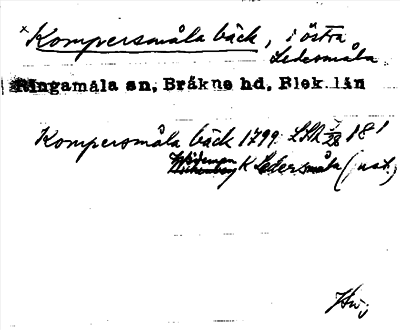 x Kompersmåla bäck, i östra
Ledersmåla
Ringamåla sn, Bräkne hd, Blek. län
Kompersmåla bäck 1799 LSA 18¹
K Ledersmåla (just.)